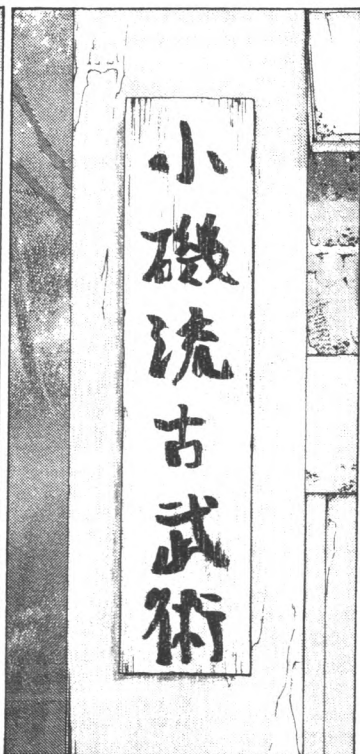 小磯流古武術